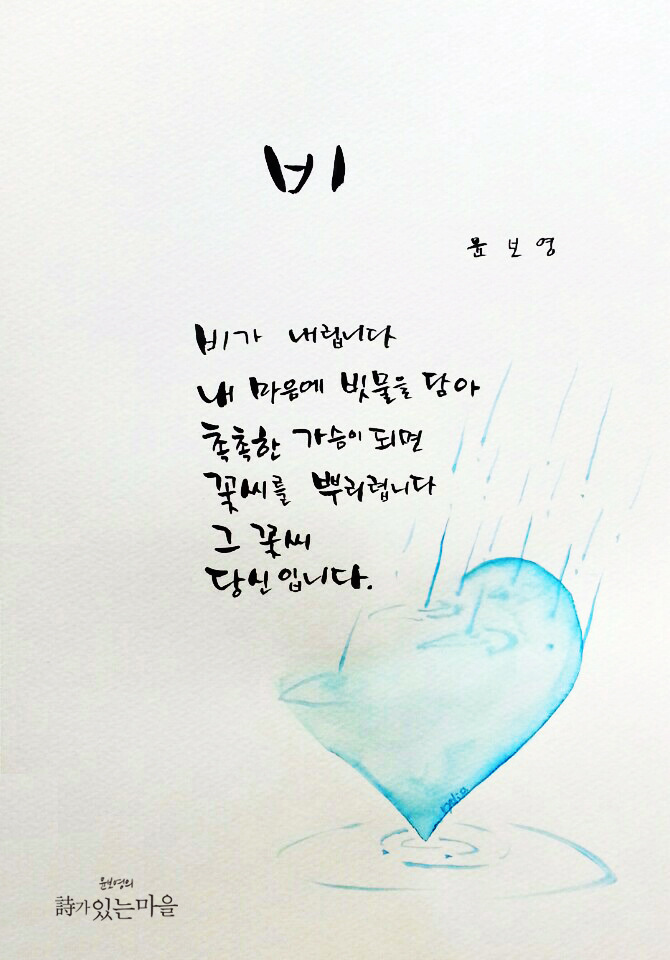 비
윤보영
비가 내립니다
내 마음에 빗물을 담아
촉촉한 가슴이 되면
꽃씨를 뿌리렵니다
그 꽃씨
당신입니다.
윤보영의
詩가있는마을